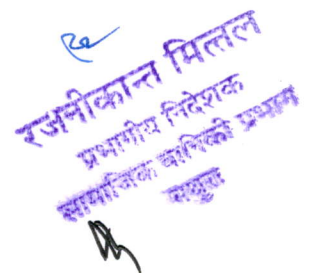 रजनीकान्त मित्तल
प्रभागीय निदेशक
सामाजिक वानिकी प्रभाग
मथुरा